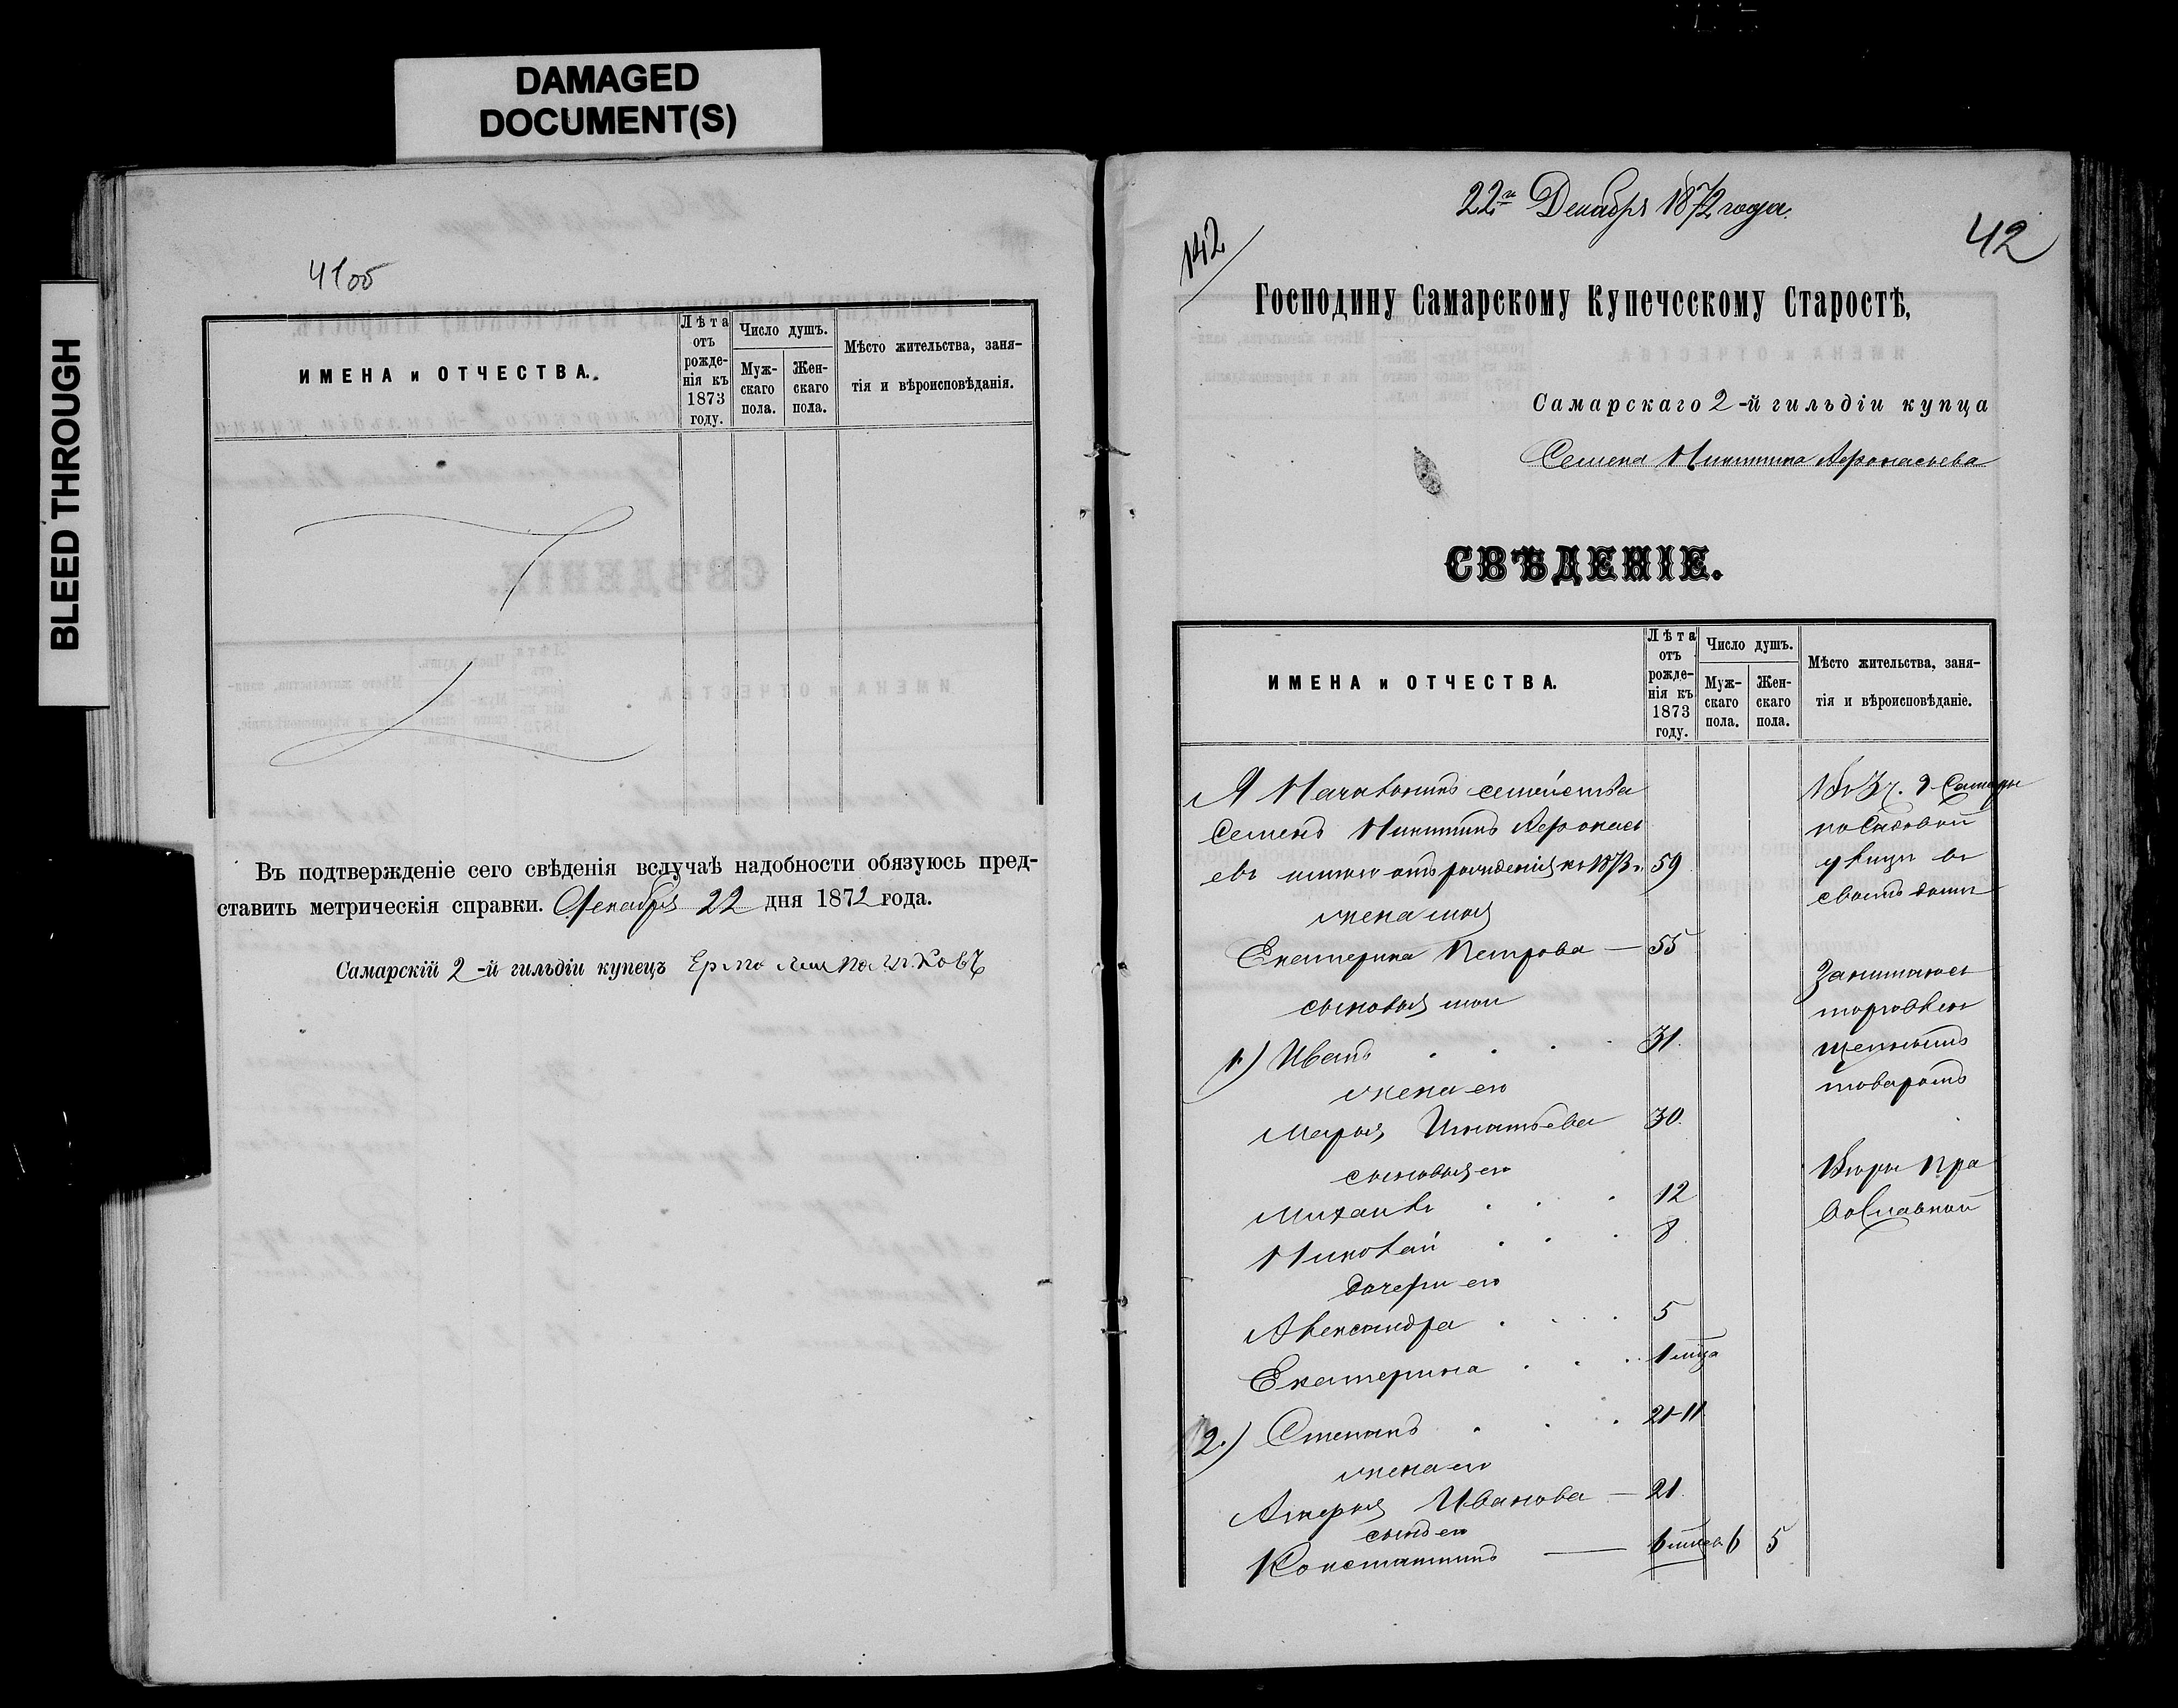 DAMAGED
DOCUMENT(S)
BLEED THROUGH
41об
ИМЕНА и ОТЧЕСТВА.
Лѣта отъ рожденія къ 1873 году.
Число душъ.
Мужскаго пола.
Женскаго пола.
Мѣсто жительства, заня-
тія и вѣроисповѣданія.
Въ подтвержденіе сего свѣденія вслучаѣ надобности обязуюсь пред-
ставить метрическія справки. Декабря 22 дня 1872 года.
Самарскій 2-й гильдіи купецъ
22го Декабря 1872 года.
142
42
Господину Самарскому Купечсскому Старостѣ,
Самарскаго 2-й гильдіи купца
Семена Никитина Афонасьева
СВѢДЕНІЕ.
ИМЕНА и ОТЧЕСТВА.
Лѣта отъ рожденія къ 1873 году.
Число душъ.
Мужскаго пола.
Женскаго пола.
Мѣсто жительства, заня-
тія и вѣроисповѣданіе.
Я Началникъ семейства
Семенъ Никитинъ Афонась
евъ отъ рожденія къ 1873 г. 59
жена моя
Екатерина Петрова — 55
сыновья мои
1) Иванъ 31.
жена его
Марья Игнатьева 30.
сыновья его
Михаилъ 12
Николай 8
дочери его
Александра 5
Екатерина 1 мца
2.) Степанъ 21-11
жена его
Иванова — 21.
сынъ его
Константинъ — 6 6 5
Самары
по Садовой
улице въ
своемъ доме
Занимаюсь
торговлею
щепнымъ
товаромъ
Веры пра
вославной